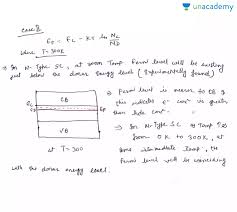 unacademy
Case B
E_F = E_C - KT ln N_C/N_D
when T=300K
⇒ In N-Type SC, at room Temp Fermi level will be existing
just below the donor energy level (Experimentally found)
CB
VB
E_F
at T-300
⇒ Fermi level is nearer to CB &
this indicates e⁻ conc is greater
than hole conc
⇒ In N-Type SC
from 0K to 300K, at
some intermediate Temp, the
Fermi level will be coinciding
with the donor energy level.